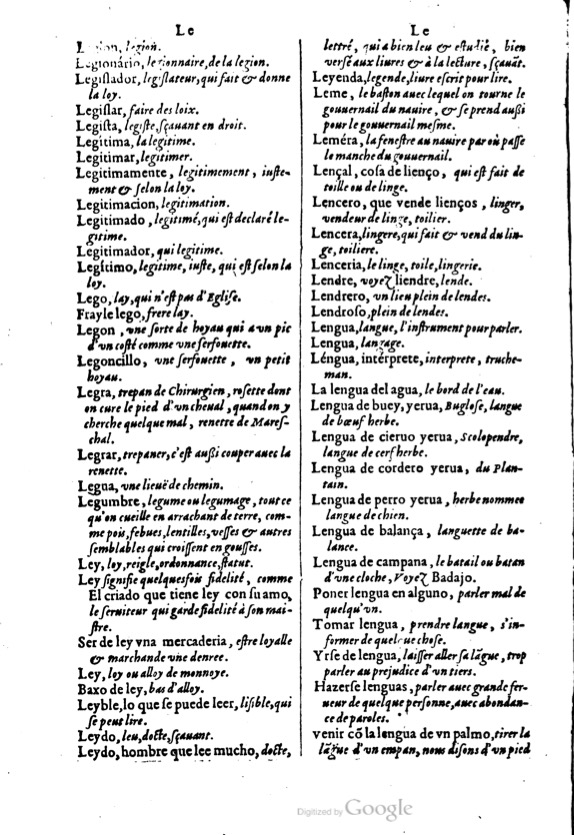 Le
Legion, legion.
Legionário, legionnaire, de la legion.
Legiſlador, legiſlateur, qui fait & donne
la loy.
Legiſlar, faire des loix.
Legiſta, legiſte, ſçauant en droit.
Legitima, la legitime.
Legitimar, legitimer.
Legitimamente, legitimement, iuſte-
ment & ſelon la loy.
Legitimacion, legitimation.
Legitimado, legitimé, qui eſt declaré le-
gitime.
Legitimador, qui legitime.
Legítimo, legitime, iuſte, qui eſt ſelon la
loy.
Lego, lay, qui n'eſt pas d'Egliſe.
Frayle lego, frere lay.
Legon, vne ſorte de hoyau qui a vn pic
d'vn coſté comme vne ſerfouette.
Legoncillo, vne ſerfouette, vn petit
hoyau.
Legra, trepan de Chirurgien, roſette dont
on cure le pied d'vn cheual, quand on y
cherche quelque mal, renette de Mareſ-
chal.
Legrar, trepaner, c'eſt auſſi couper auec la
renette.
Legua, vne lieuë de chemin.
Legumbre, legume ou legumage, tout ce
qu'on cueille en arrachant de terre, com-
me pois, febues, lentilles, veſſes & autres
ſemblables qui croiſſent en gouſſes.
Ley, loy, reigle, ordonnance, ſtatut.
Ley ſignifie quelquesfois fidelité, comme
El criado que tiene ley con ſu amo,
le ſeruiteur qui garde fidelité à ſon mai-
ſtre.
Ser de ley vna mercaderia, eſtre loyalle
& marchande vne denree.
Ley, loy ou alloy de monnoye.
Baxo de ley, bas d'alloy.
Leyble, lo que ſe puede leer, liſible, qui
ſe peut lire.
Leydo, leu, docte, ſçauant.
Leydo, hombre que lee mucho, docte,
Le
lettré, qui a bien leu & eſtudié, bien
verſé aux liures & à la lecture, ſçauāt.
Leyenda, legende, liure eſcrit pour lire.
Leme, le baſton auec lequel on tourne le
gouuernail du nauire, & ſe prend auſſi
pour le gouuernail meſme.
Leméra, la feneſtre au nauire par où paſſe
le manche du gouuernail.
Lençal, coſa de lienço, qui eſt fait de
toille ou de linge.
Lencero, que vende lienços, linger,
vendeur de linge, toilier.
Lencera, lingere, qui fait & vend du lin-
ge, toiliere.
Lenceria, le linge, toile, lingerie.
Lendre, voyez liendre, lende.
Lendrero, vn lieu plein de lendes.
Lendroſo, plein de lendes.
Lengua, langue, l'inſtrument pour parler.
Lengua, langage.
Léngua, intérprete, interprete, truche-
man.
La lengua del agua, le bord de l'eau.
Lengua de buey, yerua, Bugloſe, langue
de bœuf herbe.
Lengua de cieruo yerua, Scolopendre,
langue de cerf herbe.
Lengua de cordero yerua, du Plan-
tain.
Lengua de perro yerua, herbe nommee
langue de chien.
Lengua de balança, languette de ba-
lance.
Lengua de campana, le batail ou batan
d'vne cloche, Voyez Badajo.
Poner lengua en alguno, parler mal de
quelqu'vn.
Tomar lengua, prendre langue, s'in-
former de quelque choſe.
Yrſe de lengua, laiſſer aller ſa lāgue, trop
parler au prejudice d'vn tiers.
Hazerſe lenguas, parler auec grande fer-
ueur de quelque perſonne, auec abondan-
ce de paroles.
venir cō la lengua de vn palmo, tirer la
lāgue d'vn empan, nous diſons d'vn pied
Digitized by Google